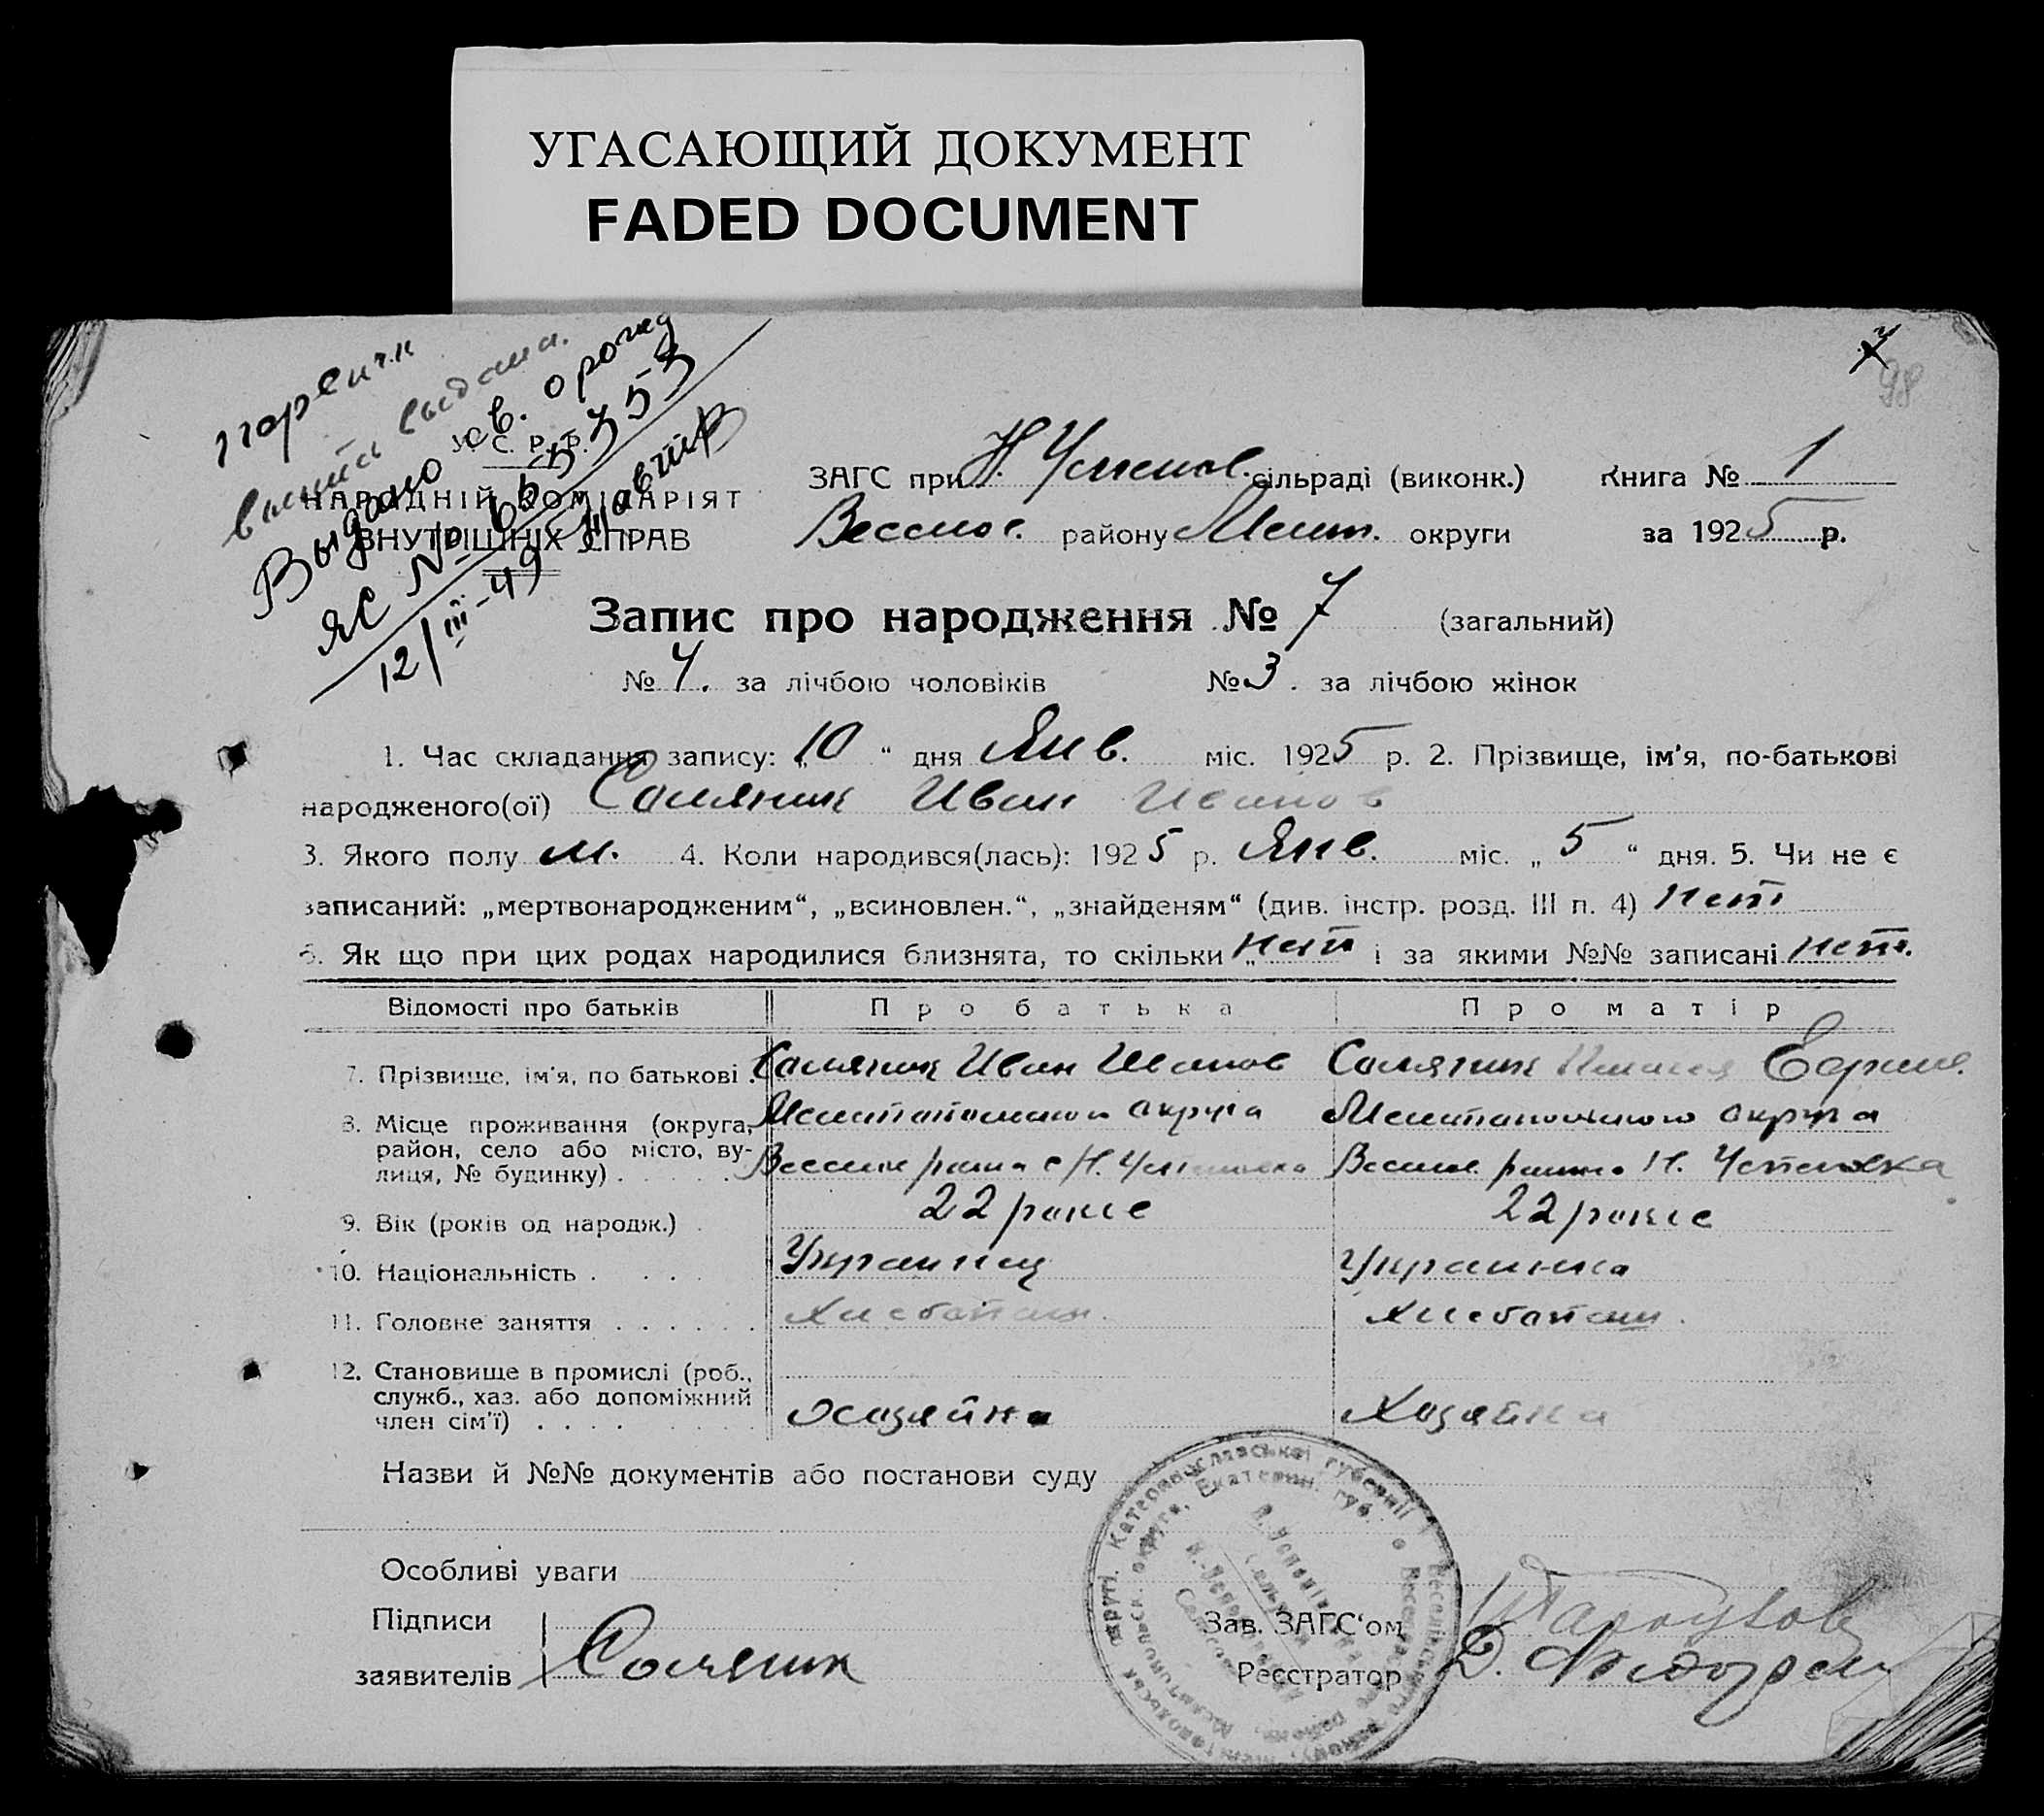 УГАСАЮЩИЙ ДОКУМЕНТ
FADED DOCUMENT
7
98
выдана.
Выдано св. о рожд
ЯС №
12/III-49
У. С. Р. Р.
НАРОДНІЙ КОМІСАРІЯТ
ВНУТРІШНІХ СПРАВ
ЗАГС при Н. Успенов. сільраді (виконк.) Книга № 1
Веселов. району Мелит. округи за 1925 р.
Запис про народження № 7 (загальний)
№ 4. за лічбою чоловіків № 3. за лічбою жінок
1. Час складання запису: „10“ дня Янв. міс. 1925 р. 2. Прізвище, ім'я, по-батькові
народженого(ої) Саляник Иван Иванов
3. Якого полу м. 4. Коли народився(лась): 1925 р. Янв. міс. „5“ дня. 5. Чи не є
записаний: „мертвонародженим“, „всиновлен.“, „знайденям“ (див. інстр. розд. III п. 4) нет
6. Як що при цих родах народилися близнята, то скільки „нет і за якими №№ записані нет.
Відомості про батьків Про батька Про матір
7. Прізвище, ім'я, по батькові . Саляник Иван Иванов Саляник
8. Місце проживання (округа, Мелитопольського округа Мелитопольського округа
район, село або місто, ву- Весел района с Н. Успеновка Весел. района Н. Успеновка
лиця, № будинку) . . . . .
9. Вік (років од народж.) . 22 роки 22 роки
10. Національність . . . . Украинец Украинка
11. Головне заняття . . . . . . Хлебопаш. Хлебопаш.
12. Становище в промислі (роб.,
служб., хаз. або допоміжний
член сім'ї) . . . . . . . . хозяйна Хозяйка
Назви й №№ документів або постанови суду
Особливі уваги
Підписи
заявителів Саляник
Зав. ЗАГС‘ом
Реєстратор Д.
Катеринославської губернії